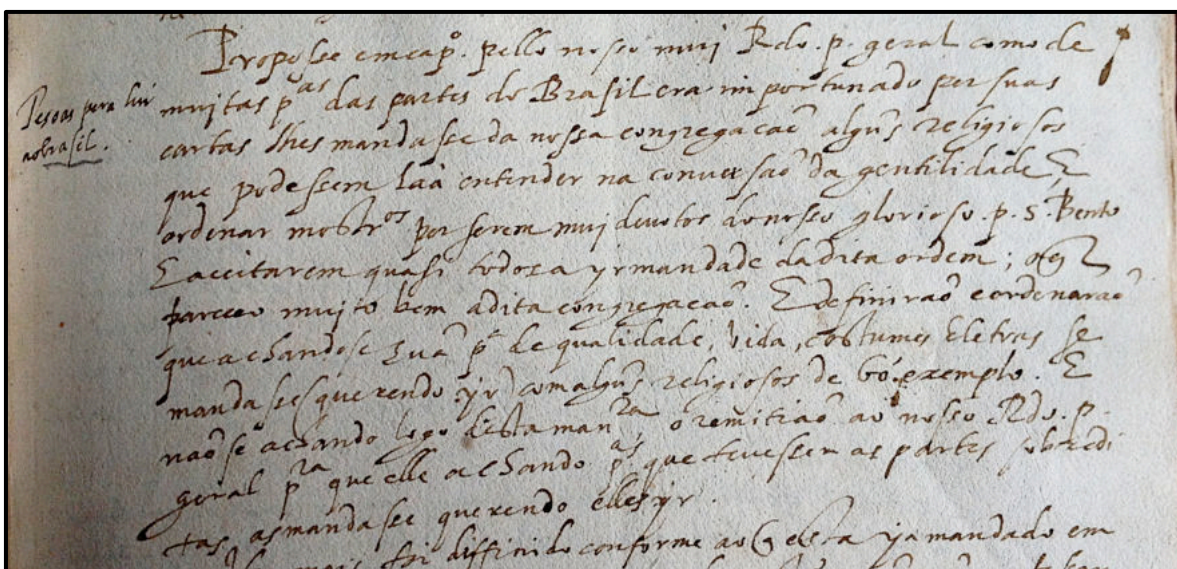 Proposse em cap.º pello nosso muj Rdo. p. geral como de
Pesoas para hir
ao brasil.
mujtas p.as das partes do Brasil era importunado per suas
cartas lhes mandasse da nossa congregacaõ algũs religiosos
que podessem laa entender na conversaõ da gentilidade E
ordenar mostr.os por serem muj devotos do nosso glorioso p. S. Bento
E aceitarem quasi todos a yrmandade da dita ordem; o q
pareceo mujto bem a dita congregacaõ. E definiraõ e ordenaraõ
que achandose hũa p.ª de qualidade, vida, costumes E letras se
mandasse (querendo yr) com algũs religiosos de bõ exemplo. E
naõ se achando logo desta man.ra o remitiaõ ao nosso Rdo. p.
geral p.ra que elle achando p.as que tevessem as partes sobredi
tas, as mandasse querendo elles yr.
mais foi diffinido conforme ao q esta ya mandado em